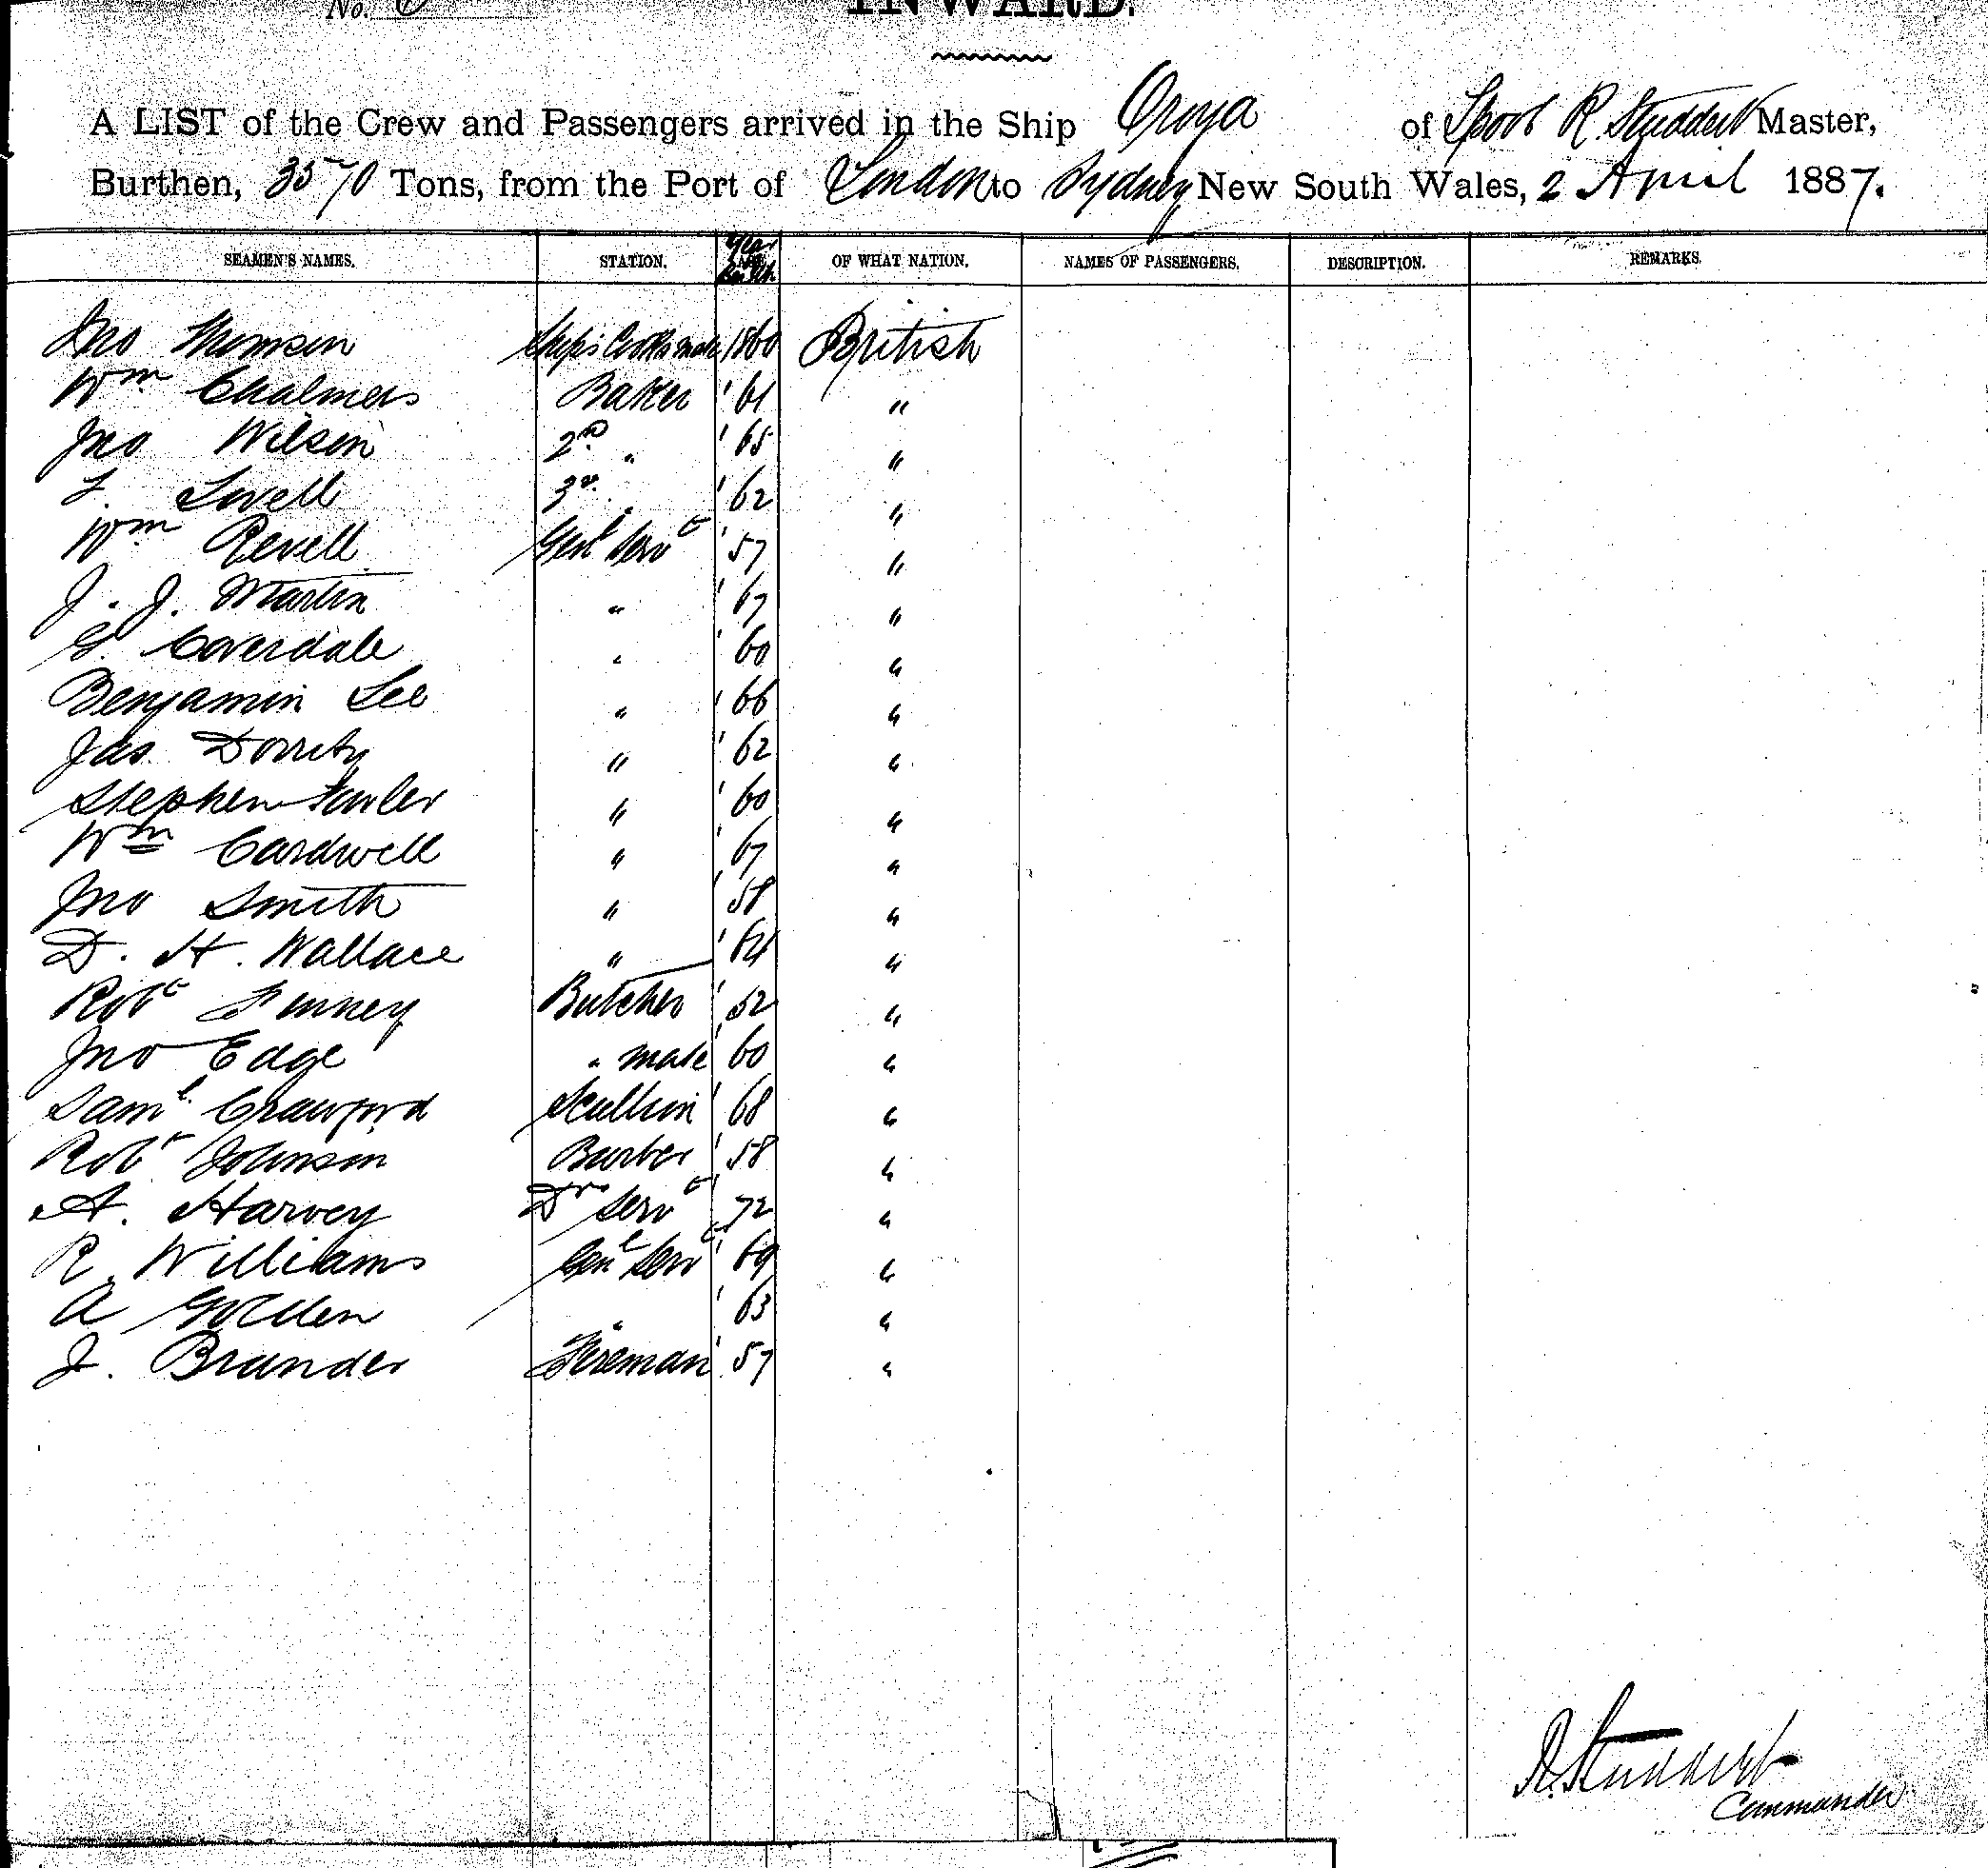 No. 6
INWARD.
A LIST of the Crew and Passengers arrived in the Ship Oroya of Lpool R. Studdert Master,
Burthen, 3570 Tons, from the Port of London to Sydney New South Wales, 2 April 1887.
SEAMEN'S NAMES. STATION. Year AGE Birth OF WHAT NATION. NAMES OF PASSENGERS. DESCRIPTION. REMARKS.
Jno Thomson Ships Cooks mate 1860 British
Wm Chalmers Baker ' 61 "
Jno Wilson 2nd " ' 65 "
Lovell 3rd " ' 62 "
Wm Revell Genl Servt ' 57 "
J. J. Martin " ' 67 "
G. Coverdale " ' 60 "
Benjamin Lee " ' 66 "
Jas. Dorrity " ' 62 "
Stephen Fowler " ' 60 "
Wm Cardwell " ' 67 "
Jno Smith " ' 58 "
D. H. Wallace " ' 64 "
Robt Butcher ' 52 "
Jno Edge " mate ' 60 "
Saml Crawford Scullion ' 68 "
Robt Johnson Barber ' 58 "
A. Harvey Drs Servt ' 72 "
R. Williams Genl Servt ' 69 "
A Golden " ' 63 "
J. Brander Fireman ' 57 "
R. Studdert
Commander